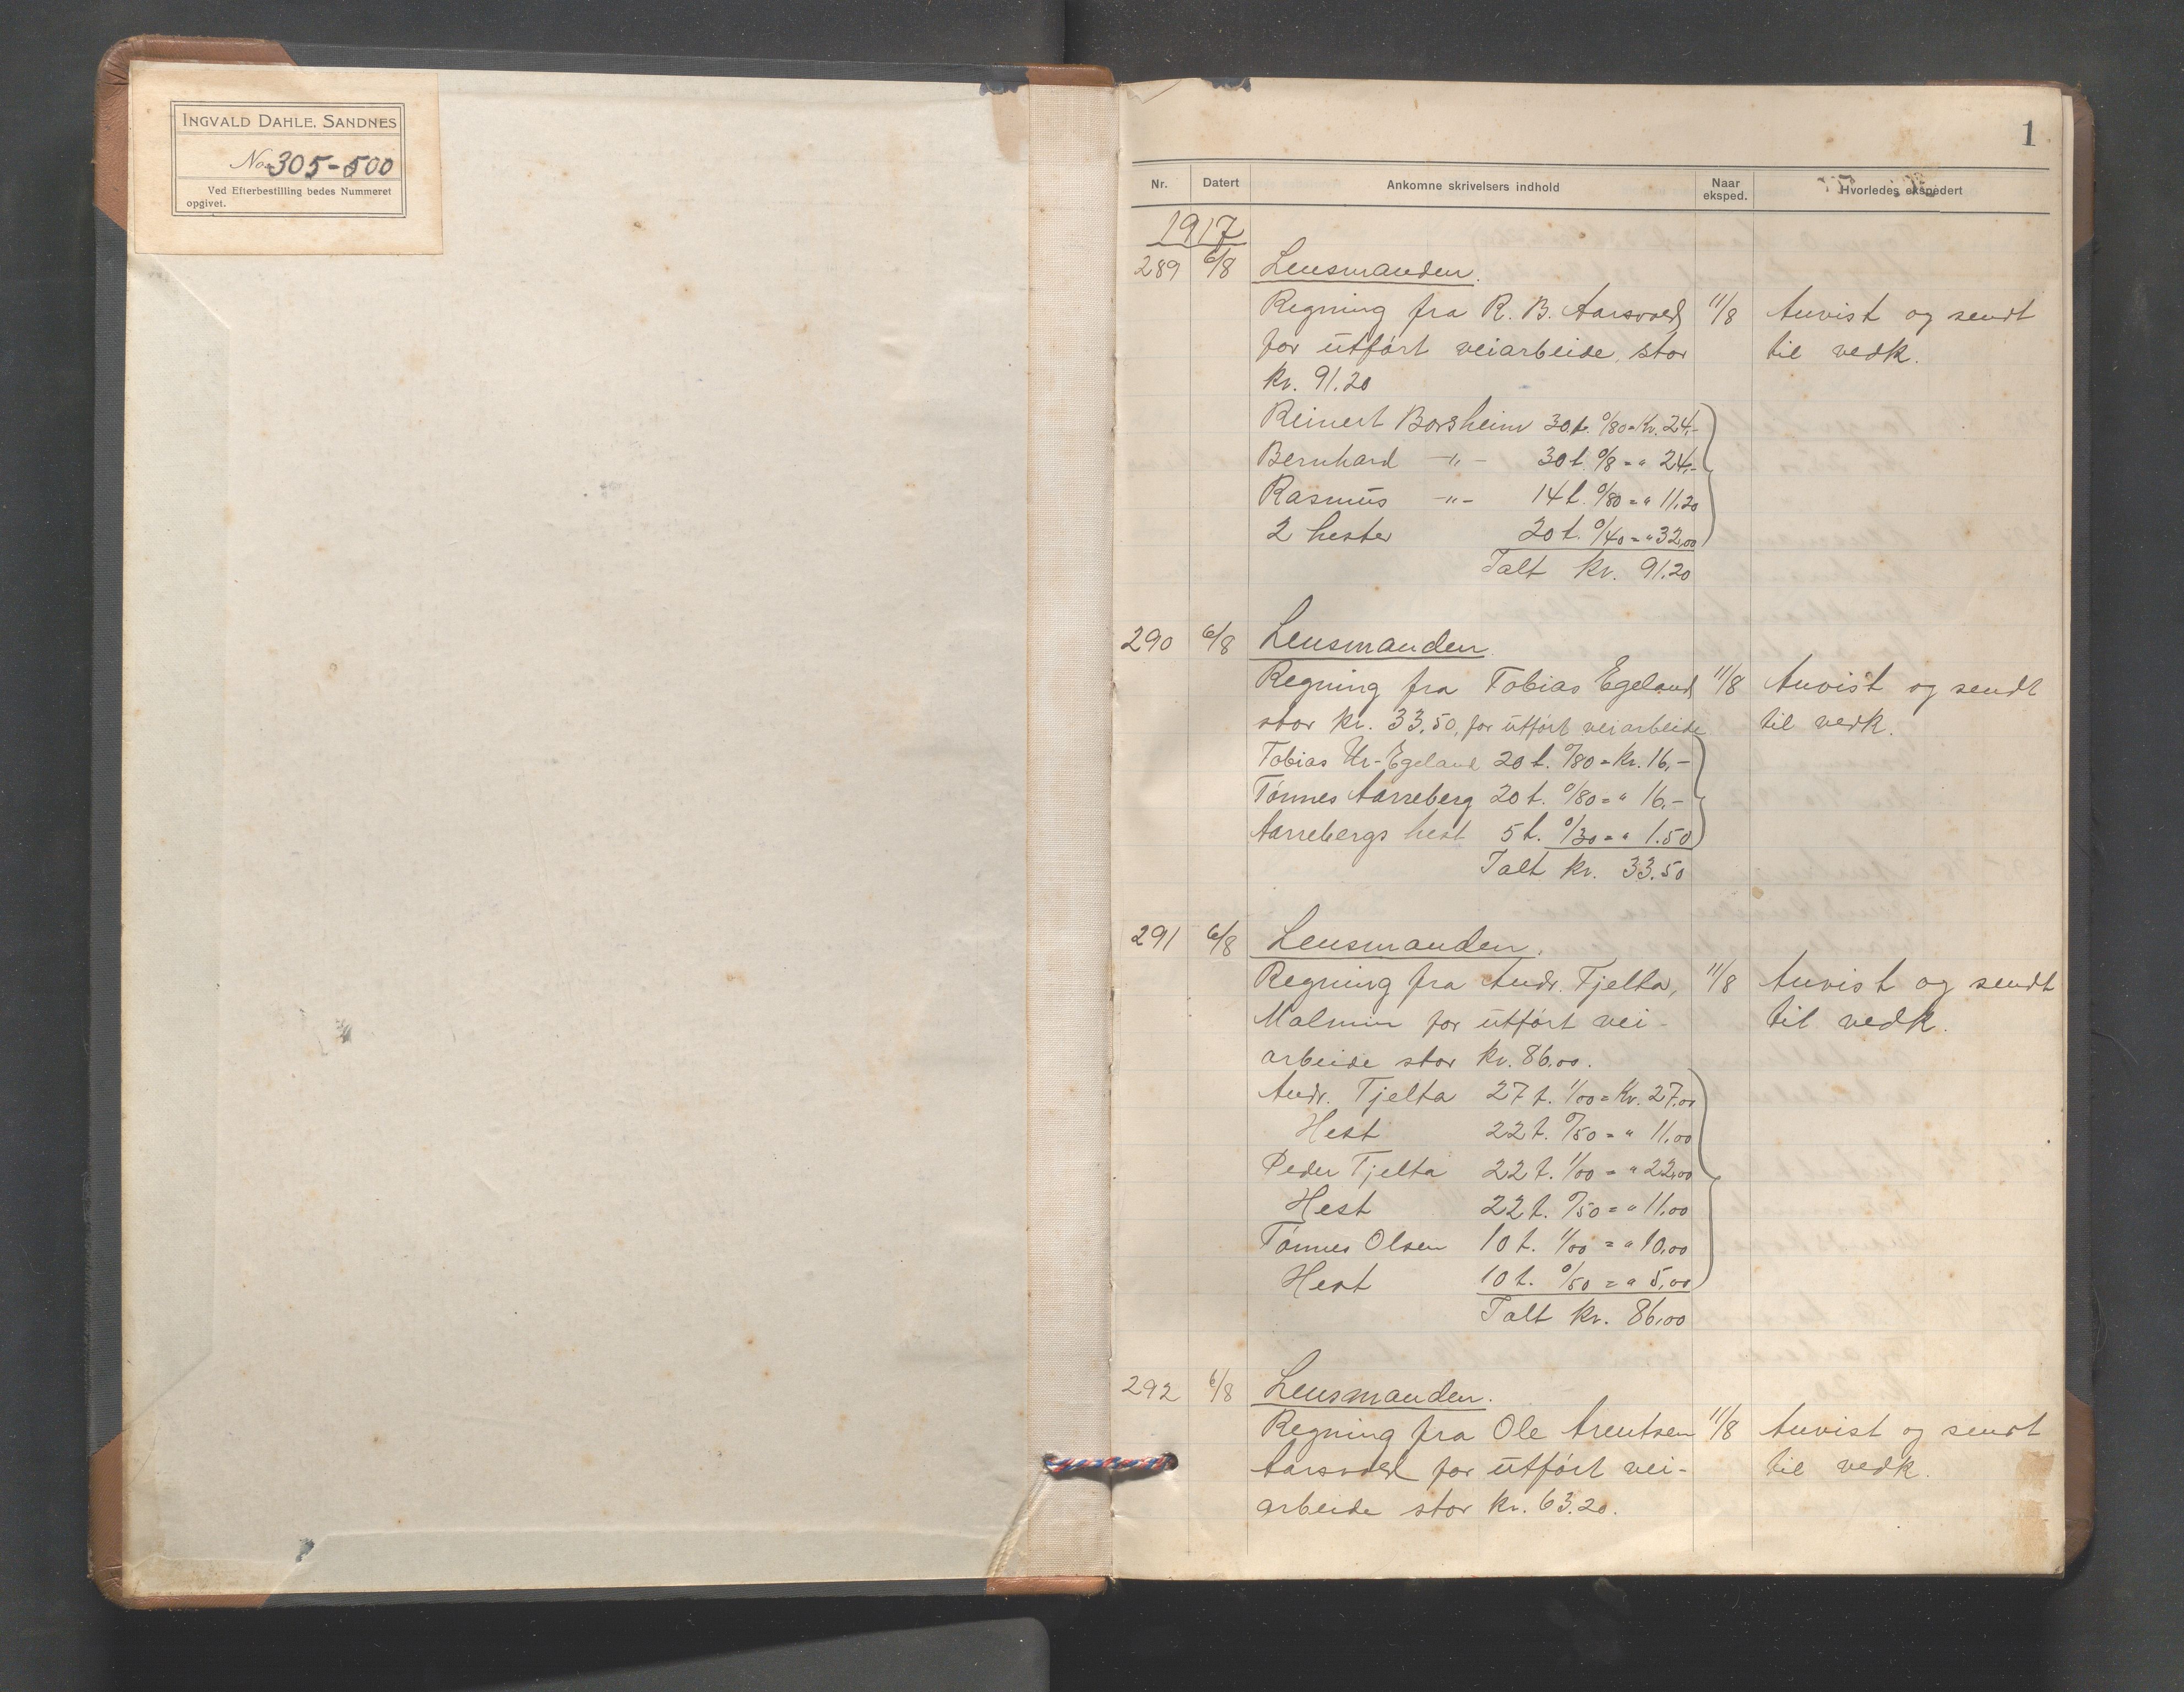 INGVALD DAHLE, SANDNES
No. 305-500
Ved Efterbestilling bedes Nummeret
opgivet.
1
Nr. Datert Ankomne skrivelsers indhold Naar eksped. Hvorledes ekspedert
1917
289 6/8 Lensmanden.
Regning fra R. B. Aarsvold 11/8 Anvist og sendt
for utført veiarbeide, stor til vedk.
kr. 91.20
Reinert Borsheim 30 t. 0/80 = Kr. 24,-
Bernhard -"- 30 t. 0/8 = " 24,-
Rasmus -"- 14 t. 0/80 = " 11,20
2 hester 20 t. 0/40 = " 32,00
Ialt kr. 91.20
290 6/8 Lensmanden.
Regning fra Tobias Egeland 11/8 Anvist og sendt
stor kr. 33,50, for utført veiarbeide til vedk.
Tobias Ur-Egeland 20 t. 0/80 = Kr. 16,-
Tønnes Aarreberg 20 t. 0/80 = " 16,-
Aarrebergs hest 5 t. 0/30 = " 1.50
Ialt kr. 33.50
291 6/8 Lensmanden.
Regning fra Andr. Tjelta, 11/8 Anvist og sendt
Malmin for utført vei- til vedk.
arbeide stor kr. 86,00.
Andr. Tjelta 27 t. 1/00 = Kr. 27,00
Hest 22 t. 0/50 = " 11,00
Peder Tjelta 22 t. 1/00 = " 22,00
Hest 22 t. 0/50 = " 11,00
Tønnes Olsen 10 t. 1/00 = " 10,00
Hest 10 t. 0/50 = " 5,00
Ialt kr. 86,00
292 6/8 Lensmanden.
Regning fra Ole Arentsen 11/8 Anvist og sendt
Aarsvold for utført vei- til vedk.
arbeide stor kr. 63.20.